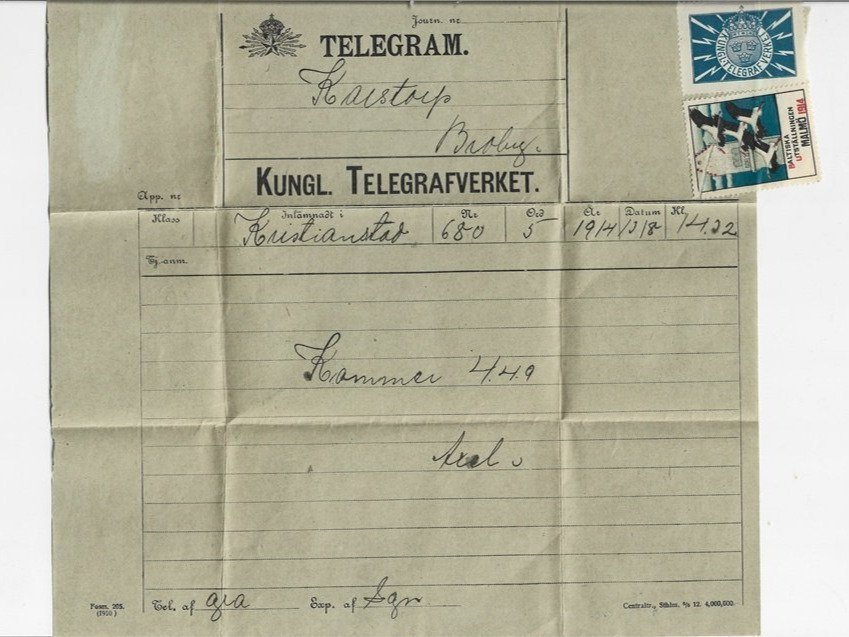 Journ. nr
TELEGRAM.
Karstorp
Broby.
KUNGL. TELEGRAFVERKET.
KUNGL. TELEGRAFVERKET
BALTISKA
UTSTÄLLNINGEN
MALMÖ 1914
App. nr
Klass Inlämnadt i Nr Ord År Datum Kl.
Kristianstad 680 5 1914 14.22
Tj.-anm.
Kommer 4.49
Axel
Tel. af gra Exp. af
Form. 205.
(1910)
Centraltr., Sthlm. 12. 4,000,000.